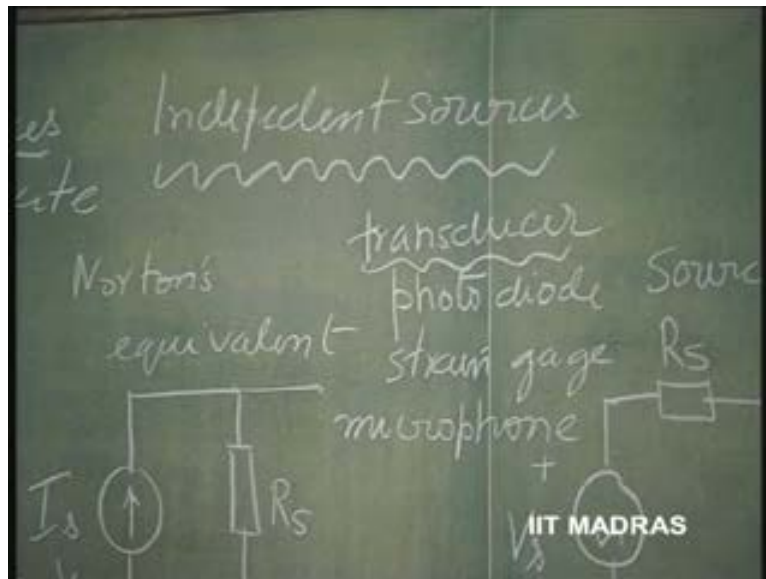 Indepedent sources
transducer
Norton's
equivalent
photo diode
strain gage
microphone
Is
Rs
Sourc
Rs
+
Vs
IIT MADRAS